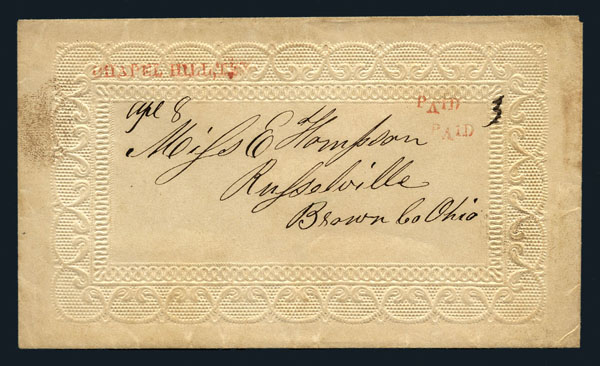 CHAPEL HILL,
apl 8
PAID 3
PAID
Miss E Thompson
Russelville
Brown Co Ohio